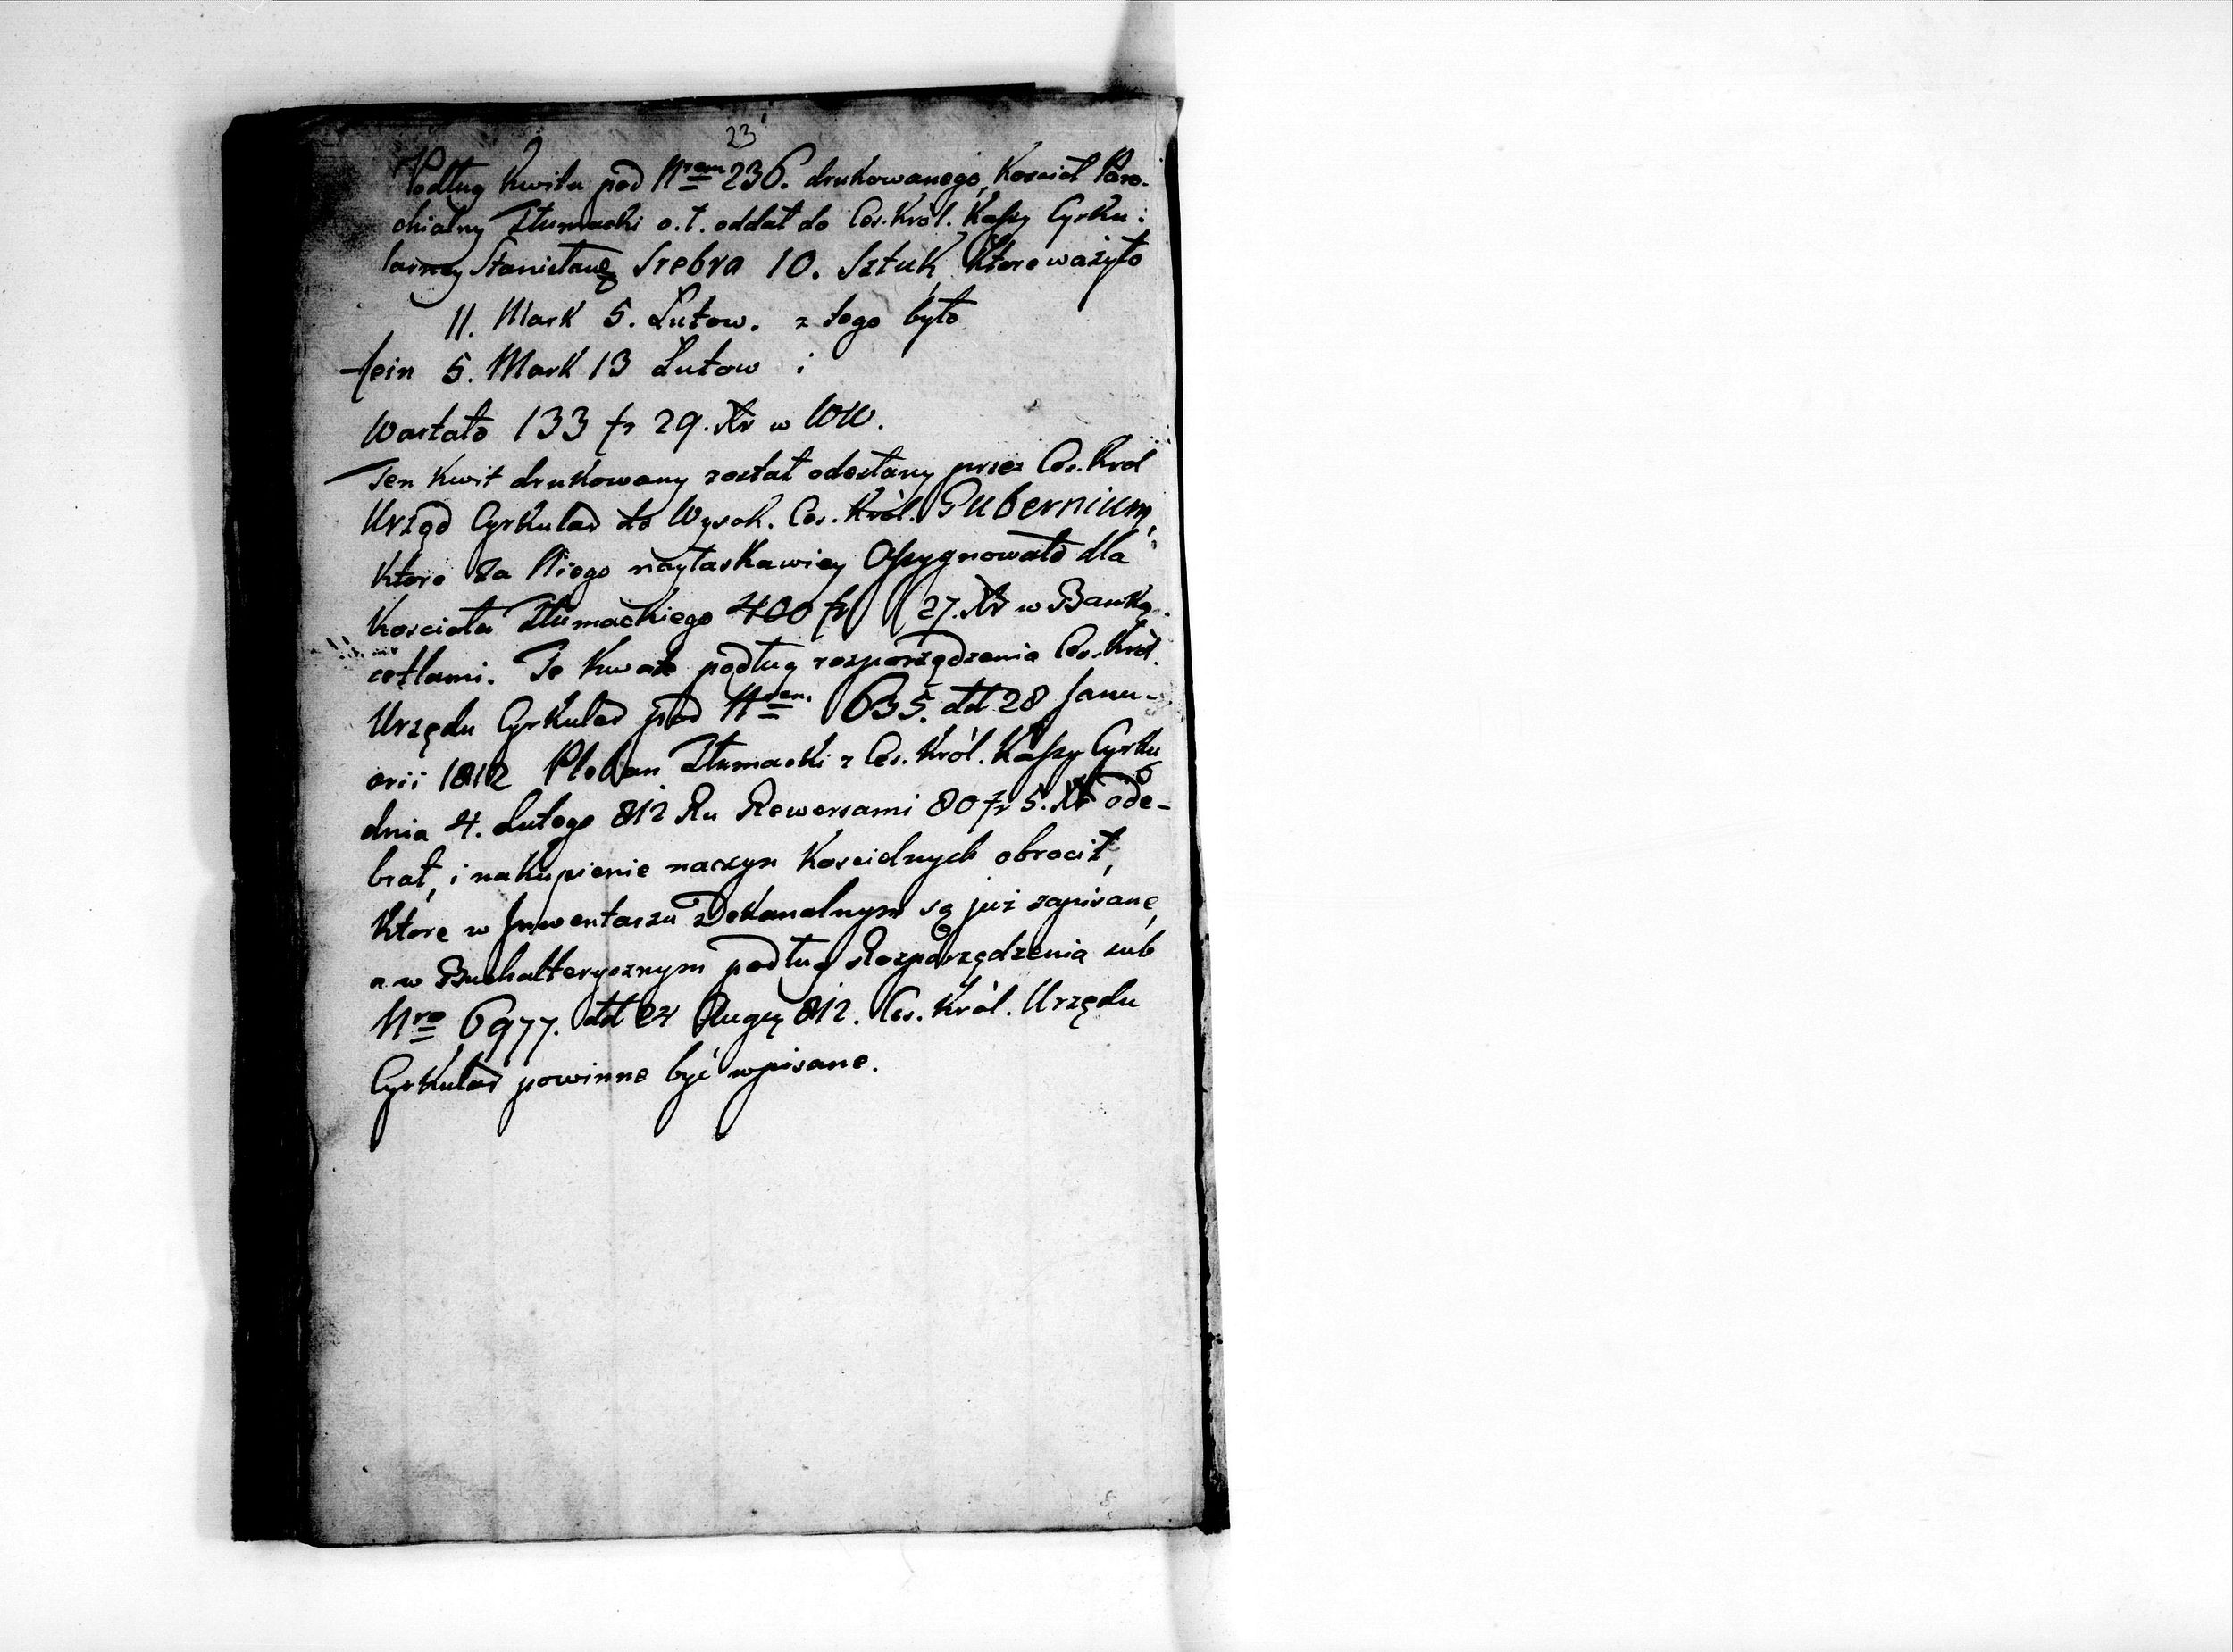 23
Podług Kwitu pod Nrem 236. drukowanego, Koscioł Paro-
chialny Tłumacki o.ł. oddał do Ces. Król. Kassy Cyrku:
larney Stanisław Srebra 10. Sztuk, Ktore ważyło
11. Mark 5. Łutow. z tego było
fein 5. Mark 13 Łutow i
Wartało 133 fr 29. Xr w WW.
Ten Kwit drukowany został odesłany przez Ces. Krol
Urząd Cyrkular do Wysok. Ces. Król. Gubernium,
Ktore za Niego nayłaskawiey Assygnowało dla
Koscioła Tłumackiego 400 fr 27. Xr w Banko
cetlami. Te Kwote podług rozporządzenia Ces. Król.
Urzędu Cyrkular pod Nrem. 635. dd 28 Janu-
arii 1812 Pleban Tłumacki z Ces. Król. Kassy Cyrku
dnia 4. Lutego 812 Ru Rewersami 80 fr 5. Xr ode-
brał, i na kupienie naczyn Koscielnych obrocił,
Ktore w Inwentarzu Dekanalnym są już zapisane,
a w Buchalterycznym podług Rozporządzenia sub
Nro 6977. dd 24 Augus 812. Ces. Król. Urzędu
Cyrkular powinne być wpisane.